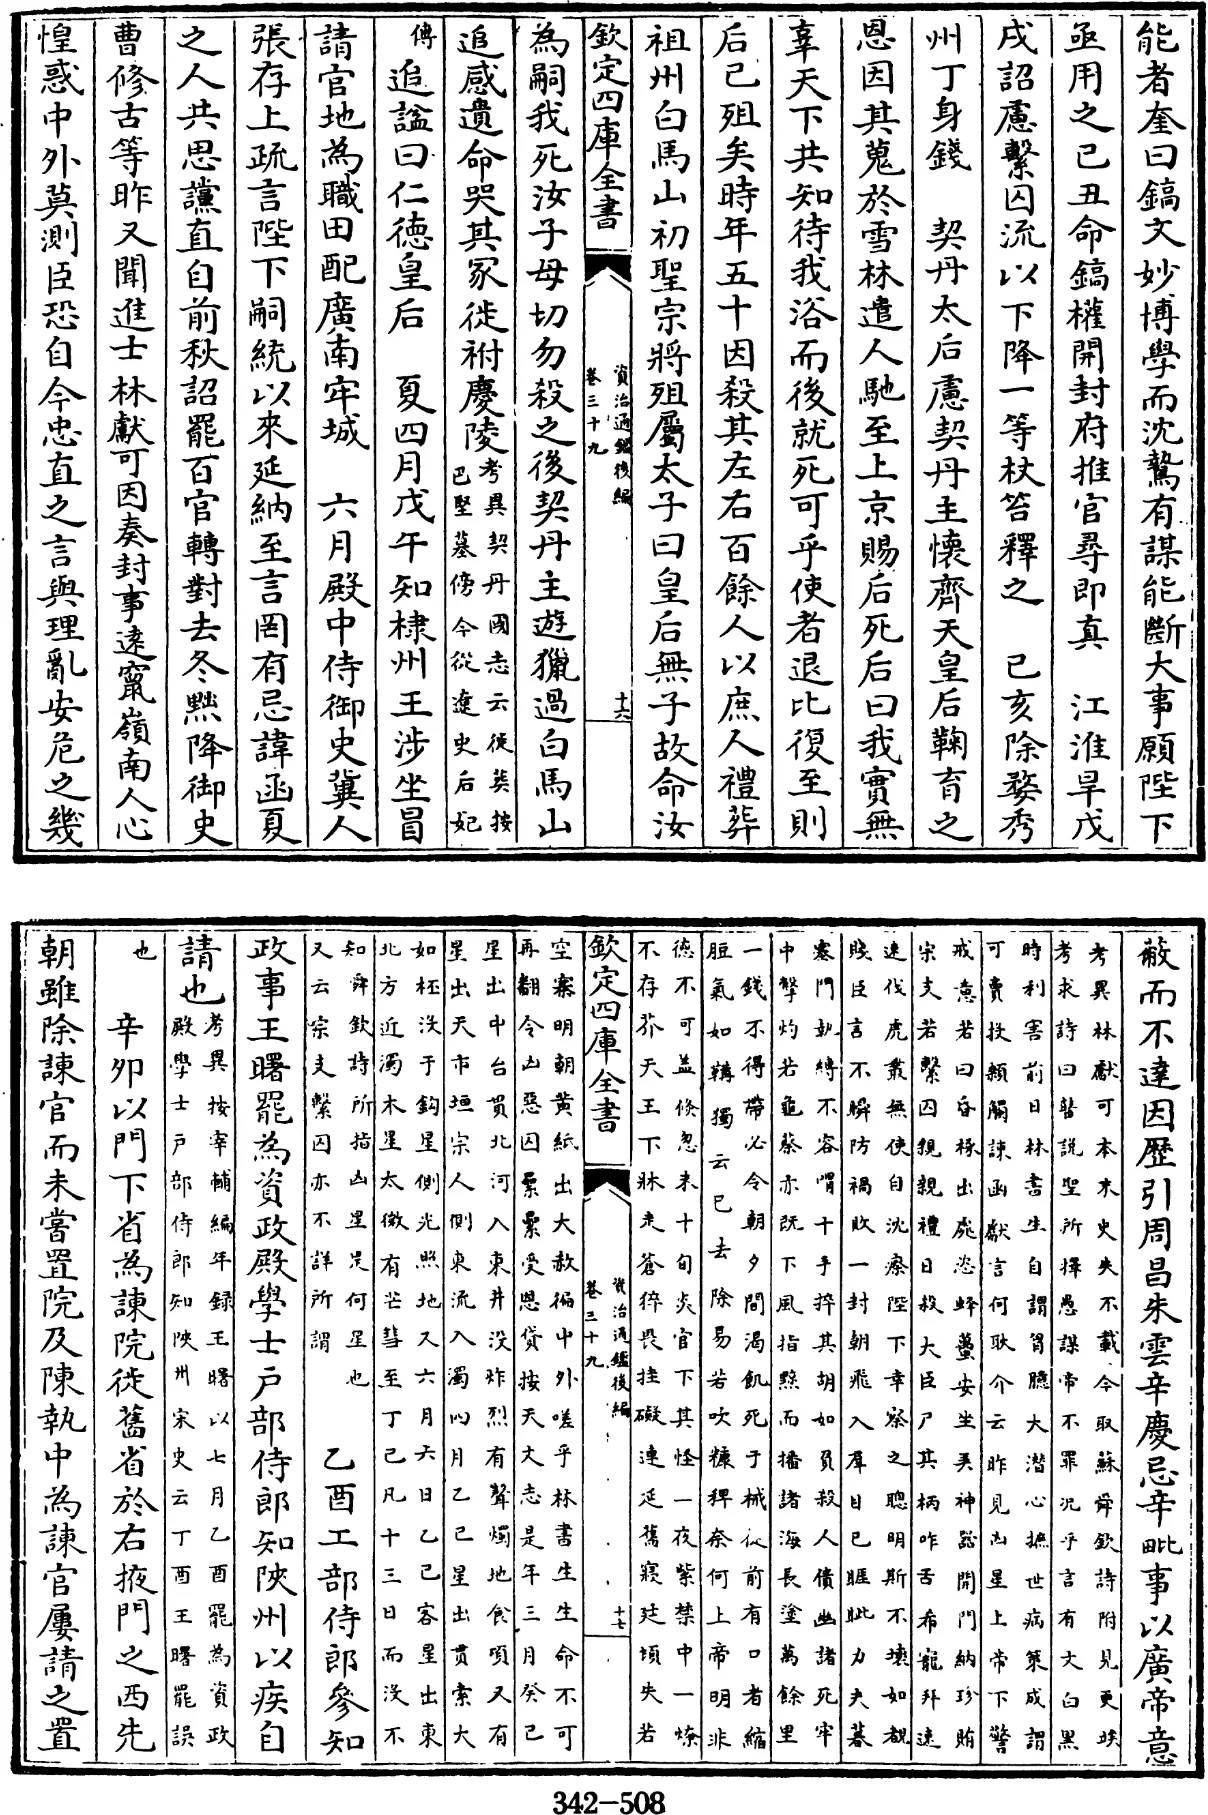 能者奎曰鎬文妙博學而沈鷙有謀能斷大事願陛下
亟用之己丑命鎬權開封府推官尋即真　江淮旱戊
戌詔慮繫囚流以下降一等杖笞釋之　己亥除婺秀
州丁身錢　契丹太后慮契丹主懷齊天皇后鞠育之
恩因其蒐於雪林遣人馳至上京賜后死后曰我實無
辜天下共知待我浴而後就死可乎使者退比復至則
后已殂矣時年五十因殺其左右百餘人以庶人禮葬
祖州白馬山初聖宗將殂屬太子曰皇后無子故命汝
欽定四庫全書
資治通鑑後編
卷三十九
十六
為嗣我死汝子母切勿殺之後契丹主遊獵過白馬山
追感遺命哭其冢徙祔慶陵
考異契丹國志云後葬按
巴堅墓傍今從遼史后妃
傳　追諡曰仁德皇后　夏四月戊午知棣州王涉坐冒
請官地為職田配廣南牢城　六月殿中侍御史冀人
張存上疏言陛下嗣統以來延納至言罔有忌諱函夏
之人共思讜直自前秋詔罷百官轉對去冬黜降御史
曹修古等昨又聞進士林獻可因奏封事遠竄嶺南人心
惶惑中外莫測臣恐自今忠直之言與理亂安危之幾
蔽而不達因歷引周昌朱雲辛慶忌辛毗事以廣帝意
考異林獻可本末史失不載今取蘇舜欽詩附見更俟
考求詩曰瞽說聖所擇愚謀帝不罪況乎言有文白黑
時利害前日林書生自謂胷臆大潛心摭世病策成謂
可賣投顙觸諫函獻言何耿介云昨見凶星上帝下警
戒意若曰昏椓出處恣蜂蠆安坐弄神器開門納珍賄
宋支若繫囚親親禮日殺大臣尸其柄咋舌希寵拜速
速伐虎叢無使自沈瘵陛下幸察之聰明斯不壞如覩
賤臣言不瞬防禍敗一封朝飛入羣目已睚眦力夫暮
塞門執縛不容喟十手捽其胡如負殺人債幽諸死牢
中擊灼若龜蔡亦既下風指黥而播諸海長塗萬餘里
一錢不得帶必令朝夕間渴飢死于械從前有口者縮
脰氣如韛獨云已去除易若吹糠稗奈何上帝明非
德不可蓋倏忽未十旬炎官下其怪一夜紫禁中一燎
不存芥天王下牀走蒼猝畏挂礙連延舊寢廷頃失若
欽定四庫全書
資治通鑑後編
卷三十九
十七
空寨明朝黃紙出大赦徧中外嗟乎林書生生命不可
再翻令凶惡囚累累受恩貸按天文志是年三月癸巳
星出中台貫北河入東井没炸烈有聲燭地食頃又有
星出天市垣宗人側東流入濁四月乙巳星出貫索大
如柸没于鈎星側光照地又六月六日乙巳客星出東
北方近濁木星太微有芒彗至丁巳凡十三日而没不
知舜欽詩所指凶星是何星也
又云宗支繫囚亦不詳所謂
乙酉工部侍郎參知
政事王曙罷為資政殿學士戶部侍郎知陝州以疾自
請也
考異按宰輔編年録王曙以七月乙酉罷為資政
殿學士戶部侍郎知陝州宋史云丁酉王曙罷誤
也　辛卯以門下省為諫院徙舊省於右掖門之西先
朝雖除諫官而未嘗置院及陳執中為諫官屢請之置
342-508